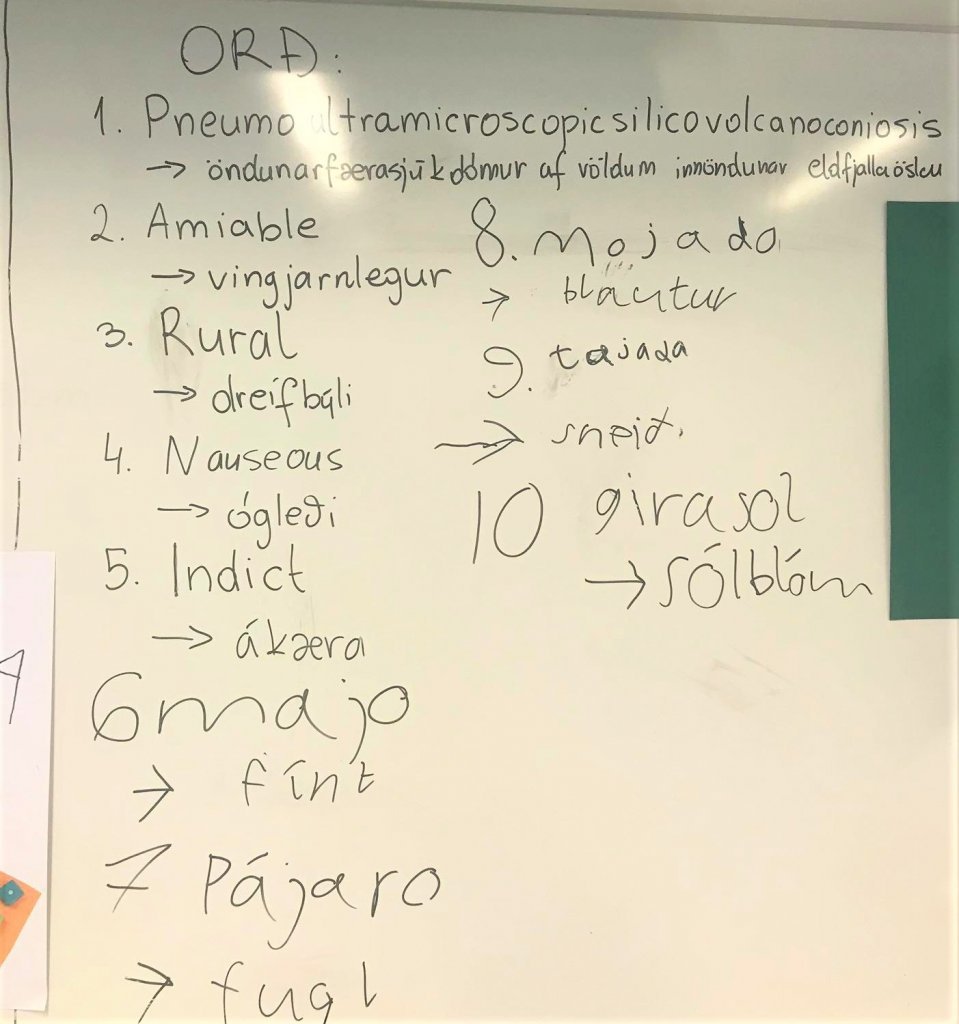 ORÐ:
1. Pneumoultramicroscopicsilicovolcanoconiosis
→ öndunarfærasjúkdómur af völdum innöndunar eldfjallaösku
2. Amiable
→ vingjarnlegur
3. Rural
→ dreifbýli
4. Nauseous
→ ógleði
5. Indict
→ ákæra
6 majo
→ fínt
7 Pájaro
→ fugl
8. mojado
→ blautur
9. tajada
→ sneið.
10 girasol
→ sólblóm